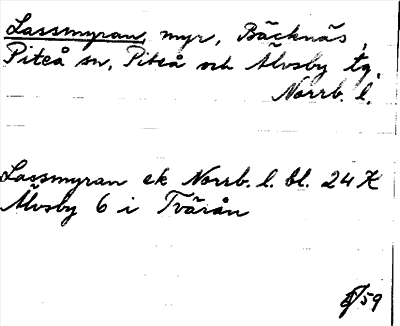 Lassmyran, myr, Bäcknäs,
Piteå sn, Piteå och Älvsby tg,
Norrb. l.
Lassmyran ek Norrb. l. bl. 24 K
Älvsby 6 i Tvärån
/59